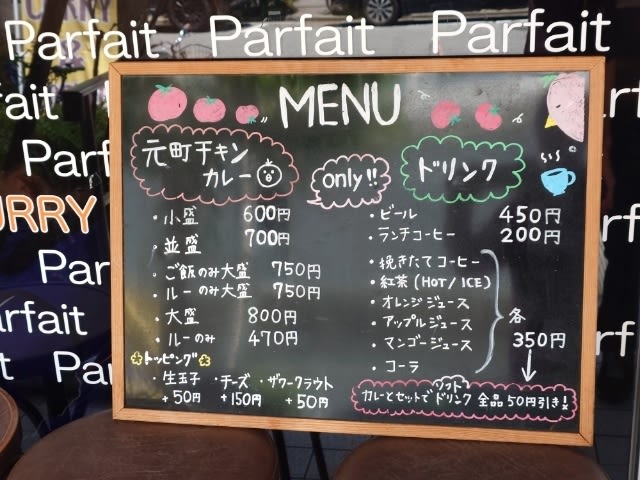 CURRY
Parfait Parfait Parfait
MENU
元町チキン
カレー
only!!
ドリンク
・小盛 600円
・並盛 700円
・ご飯のみ大盛 750円
・ルーのみ大盛 750円
・大盛 800円
・ルーのみ 470円
トッピング
・生玉子 ・チーズ ・ザワークラウト
+50円 +150円 +50円
・ビール 450円
・ランチコーヒー 200円
・挽きたてコーヒー
・紅茶(HOT/ICE)
・オレンジジュース
・アップルジュース
・マンゴージュース
・コーラ
各
350円
ソフト
カレーとセットでドリンク全品50円引き!
fait
Parf
URRY
Par
arfait
Pa